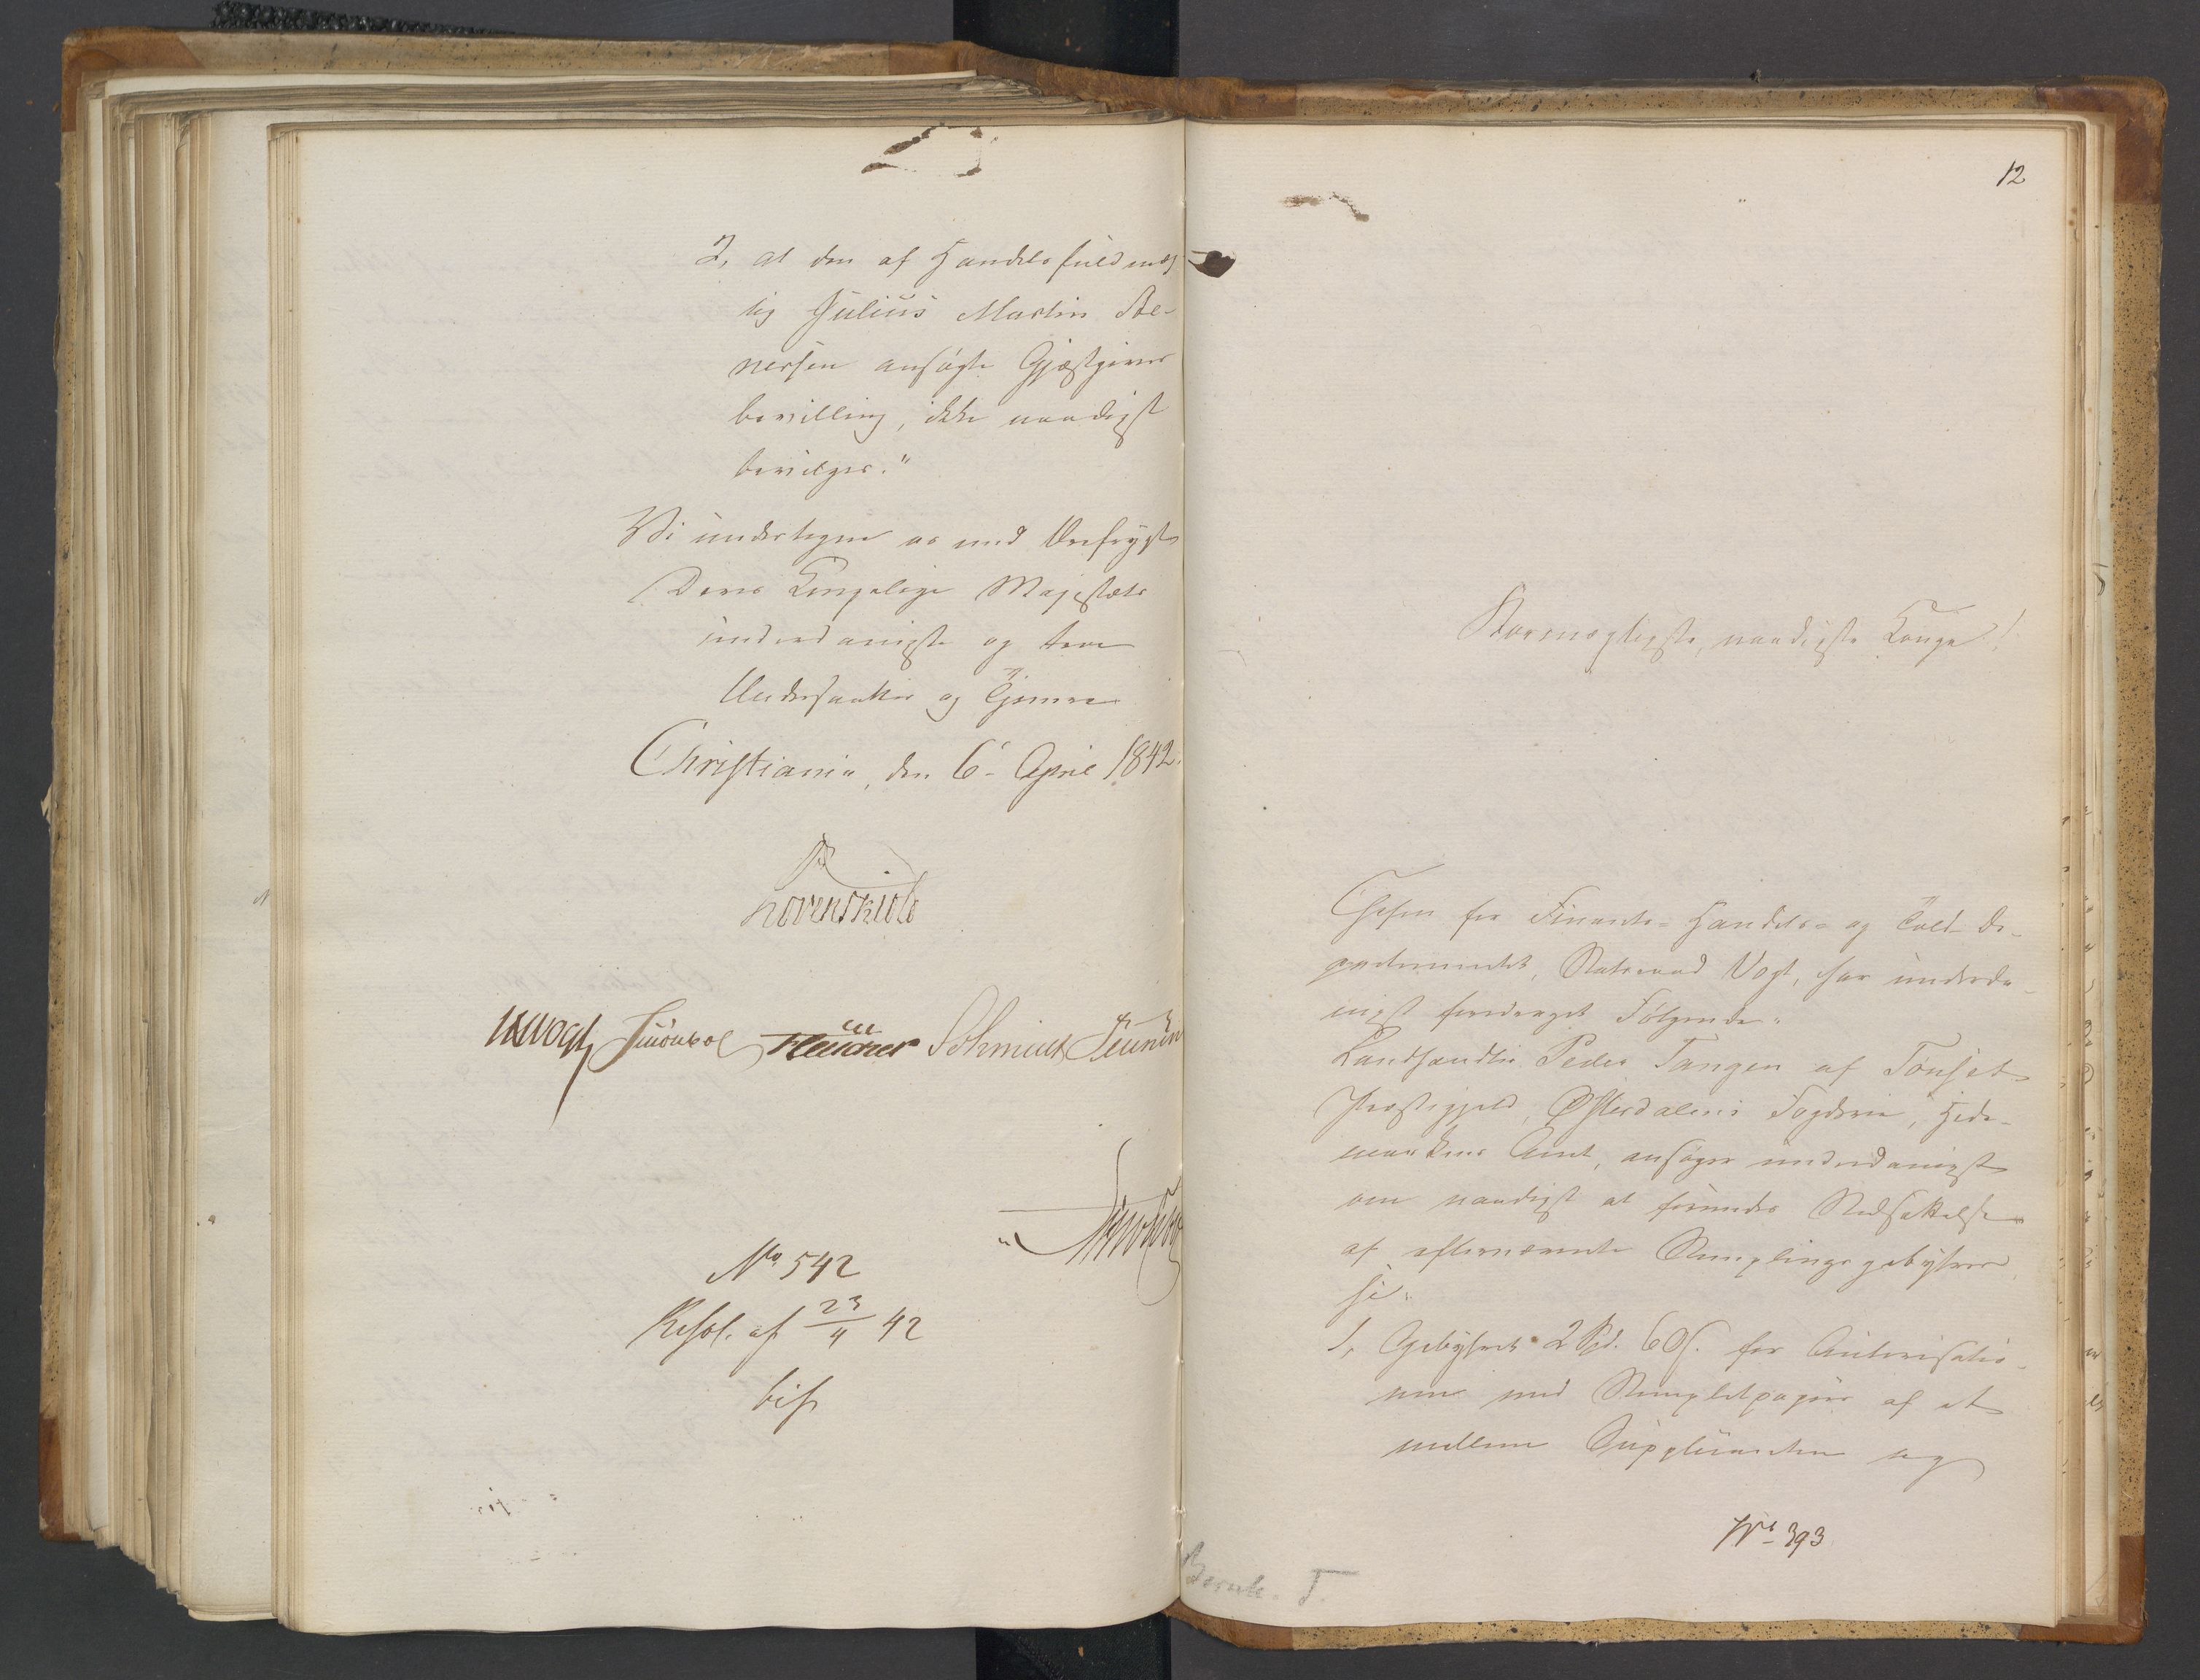 2, at den af Handelsfuldmæg
tig Julius Martin Ste-
nersen ansøgte Gjæstgiver
bevilling, ikke naadigst
bevilges."
Vi undertegne os med Ærefrygt
Deres Kongelige Majestæts
underdanigste og troe
Undersaatter og Tjenere
Christiania, den 6- April 1842.
Løvenskiold
Vogt Schmidt
No 542
Resol. af 23/4 42
bif.
12
Stormægtigste, naadigste Konge!
Chefen for Finants- Handels- og Told De-
partementet, Statsraad Vogt, har underda-
nigst foredraget Følgende:
Landhandler Peder Tangen af Tønset
Præstegjeld, Østerdalens Fogderie, Hede-
markens Amt, ansøger underdanigst
om naadigst at forundes Nedsættelse
af efternævnte Stemplingsgebyhrer,
1, Gebyhret 2 Spd. 60 s. for Autorisatio-
nen med Stempletpapiir af et
mellem Supplicanten og
No 393
Beruh. T.